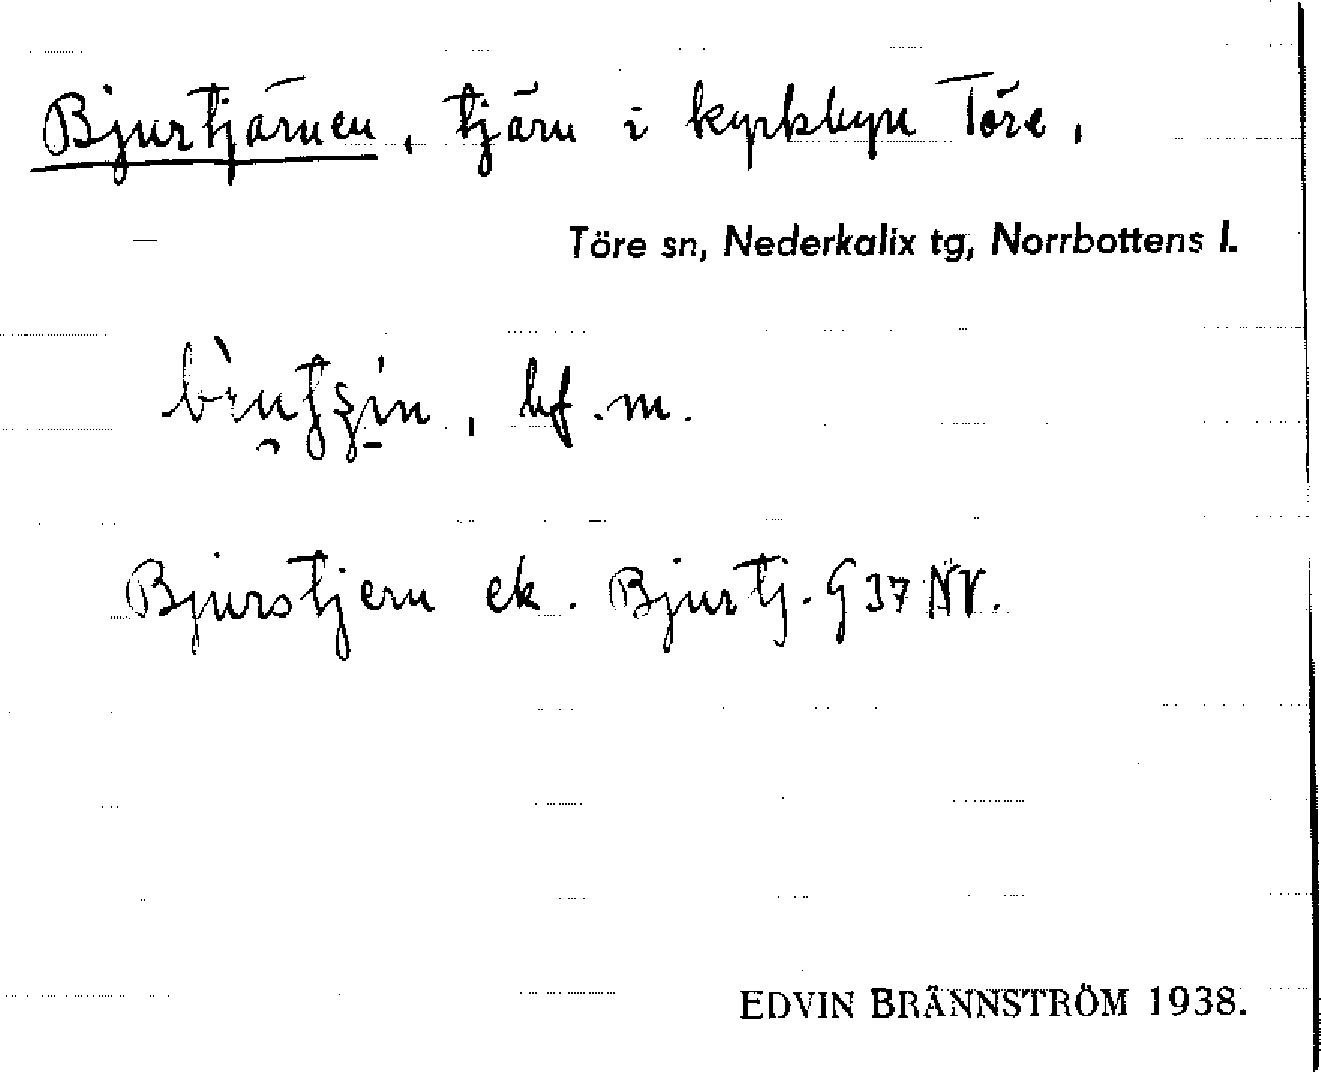 Bjurtjärnen, tjärn i kyrkbyn Töre,
Töre sn, Nederkalix tg, Norrbottens l.
bf. m.
Bjurstjern ek. Bjurtj. G 37 NV.
EDVIN BRÄNNSTRÖM 1938.